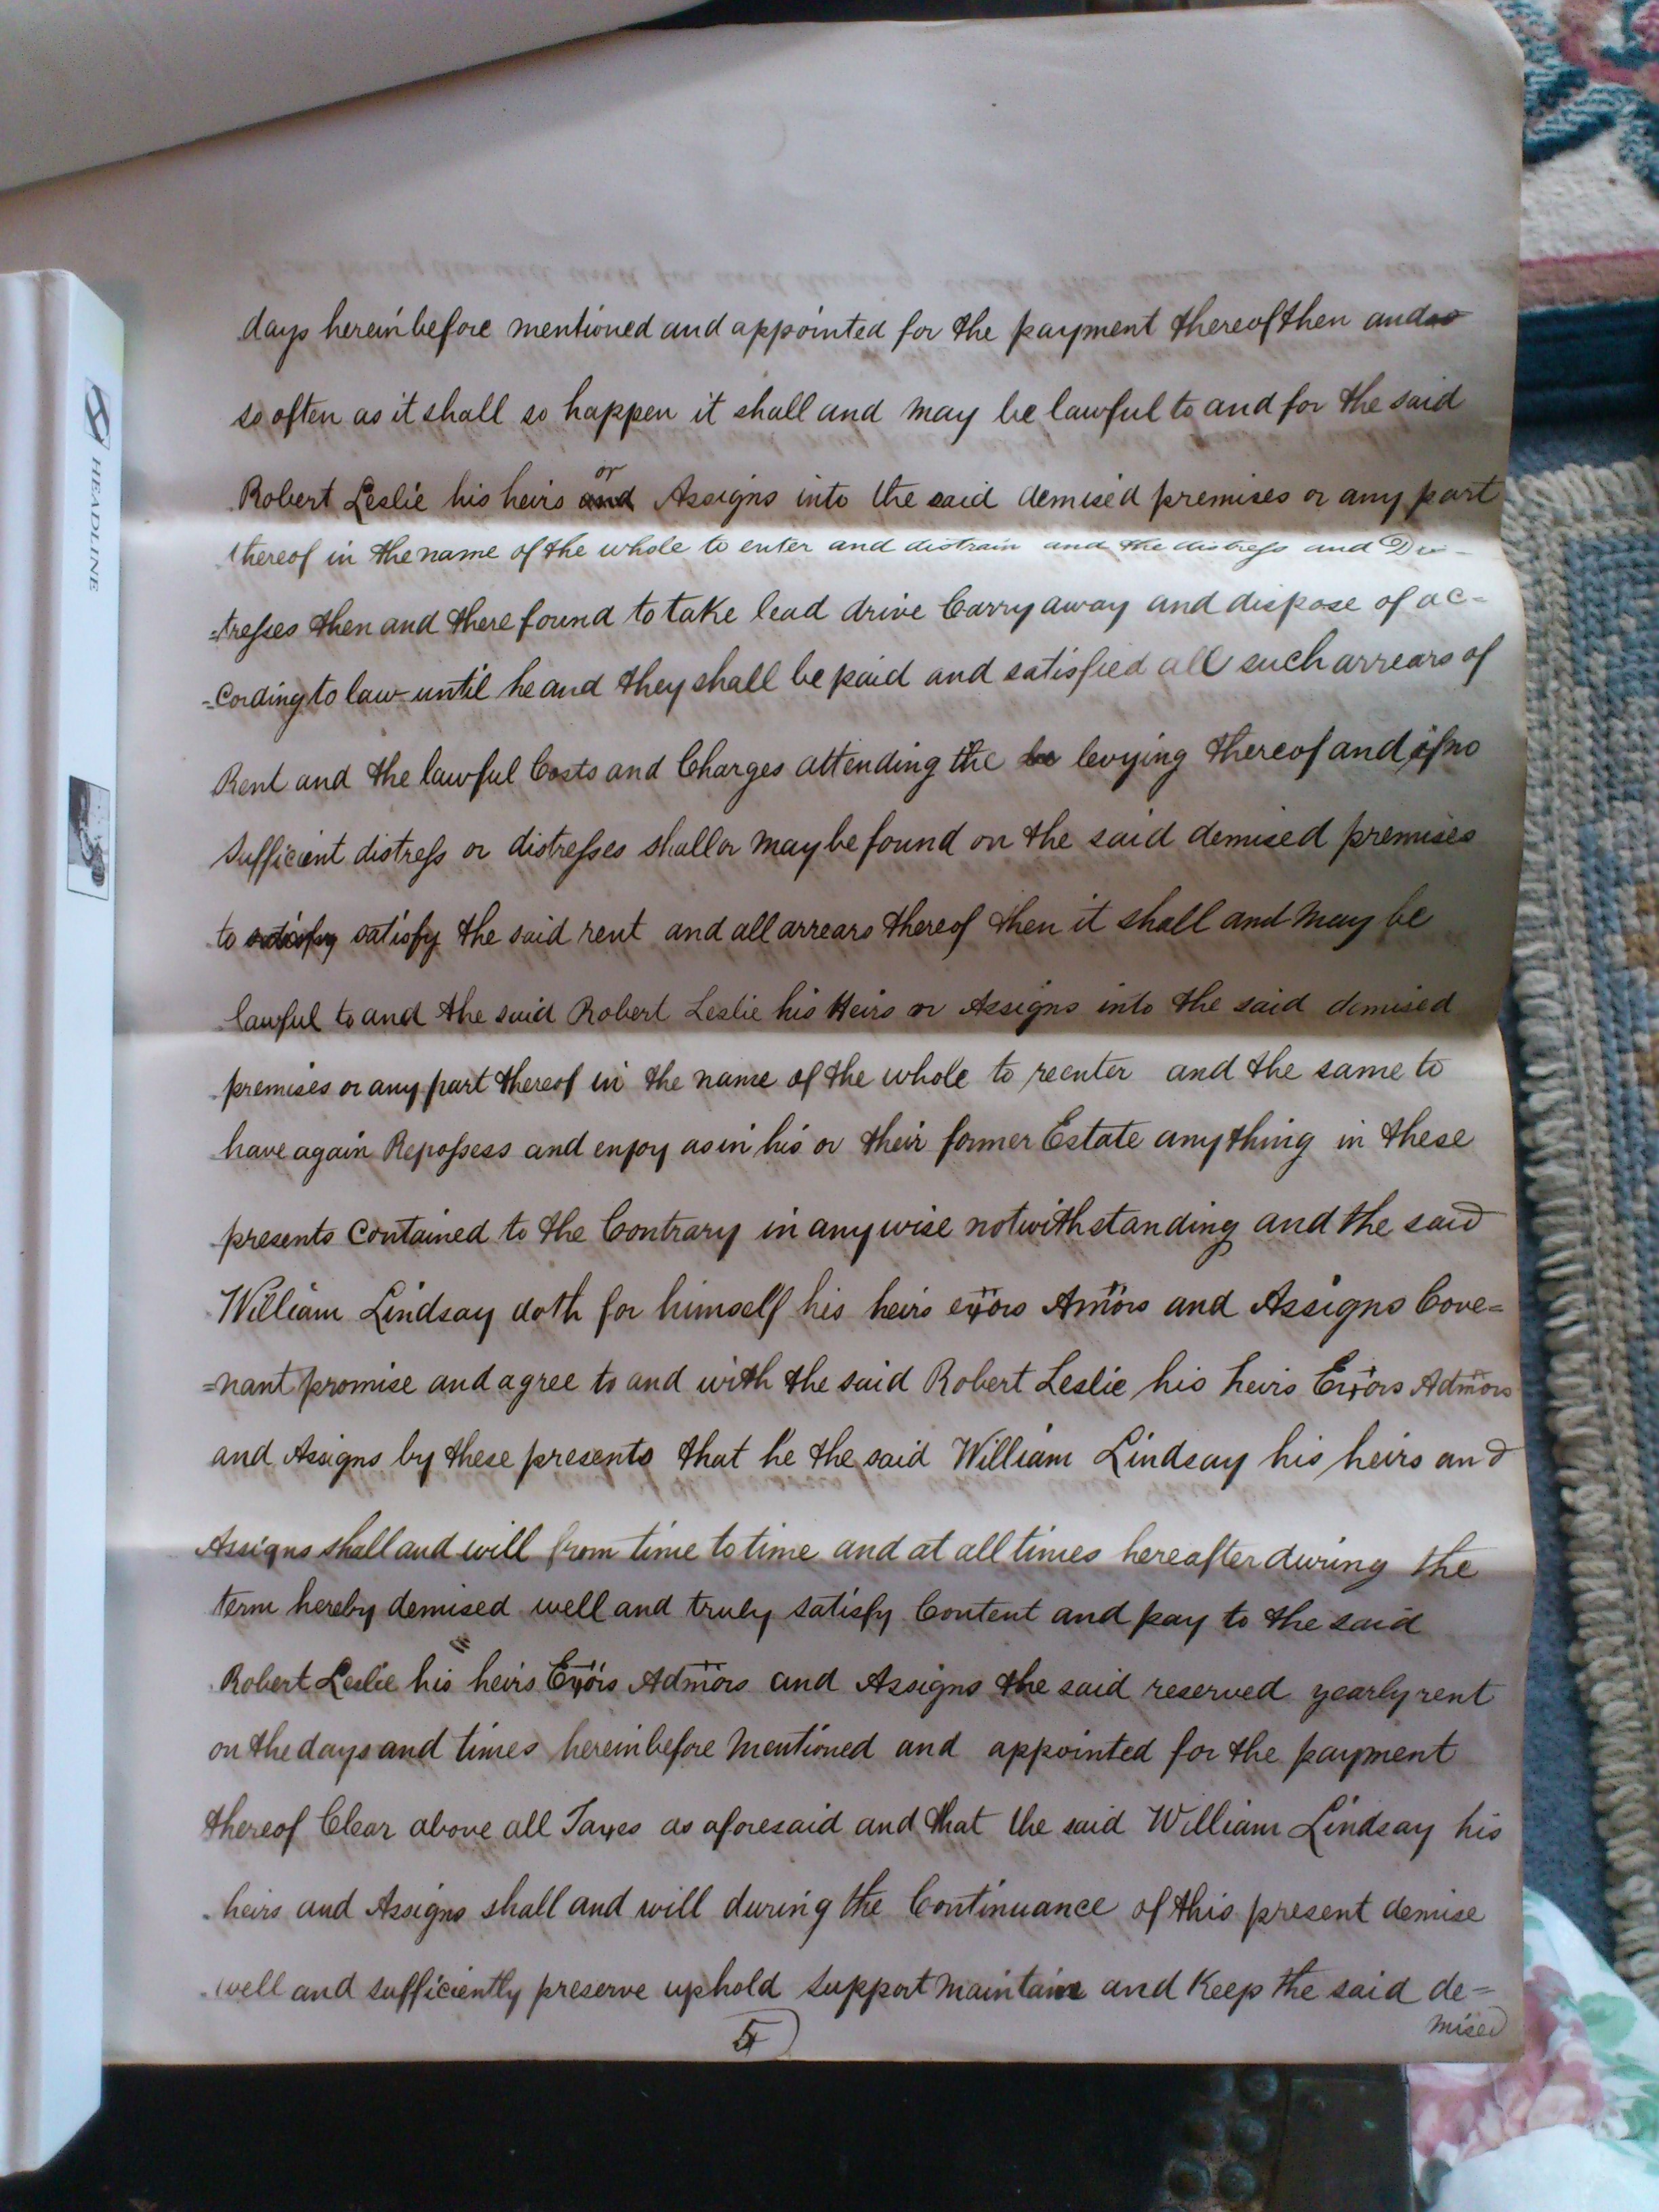 HEADLINE
days hereinbefore mentioned and appointed for the payment thereof then and so
so often as it shall so happen it shall and may be lawful to and for the said
or
Robert Leslie his heirs and Assigns into the said demised premises or any part
thereof in the name of the whole to enter and distrain and the distress and Dis-
=tresses then and there found to take lead drive Carry away and dispose of ac=
=Cording to law until he and they shall be paid and satisfied all such arrears of
Rent and the lawful Costs and Charges attending the be levying thereof and if no
Sufficient distress or distresses shall or may be found on the said demised premises
to satisfy satisfy the said rent and all arrears thereof then it shall and may be
lawful to and the said Robert Leslie his Heirs or Assigns into the said demised
premises or any part thereof in the name of the whole to reenter and the same to
have again Repossess and enjoy as in his or their former Estate anything in these
presents Contained to the Contrary in anywise notwithstanding and the said
William Lindsay doth for himself his heirs exors Amors and Assigns Cove=
=nant promise and agree to and with the said Robert Leslie his heirs Exors Admors
and Assigns by these presents that he the said William Lindsay his heirs and
Assigns shall and will from time to time and at all times hereafter during the
term hereby demised well and truly satisfy Content and pay to the said
Robert Leslie his heirs Exors Admors and Assigns the said reserved yearly rent
on the days and times hereinbefore mentioned and appointed for the payment
thereof Clear above all Taxes as aforesaid and that the said William Lindsay his
heirs and Assigns shall and will during the Continuance of this present demise
well and sufficiently preserve uphold support maintain and Keep the said de=
mised
5